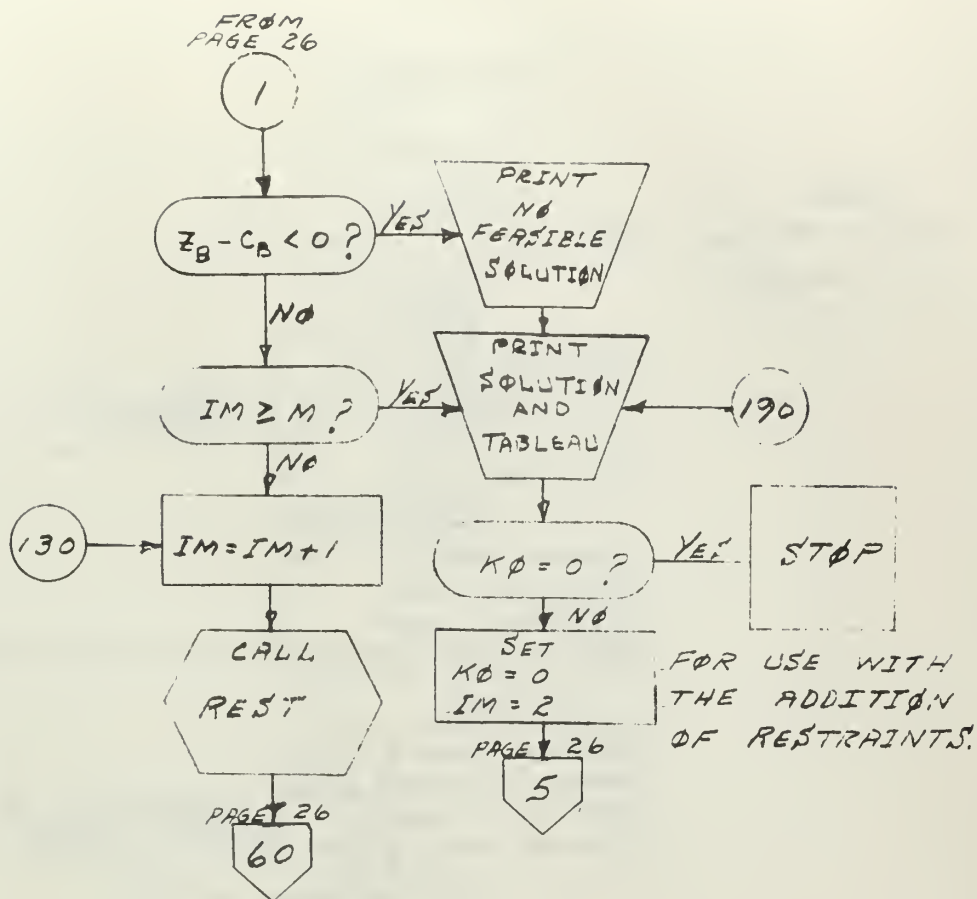 FRØM
PAGE 26
1
Z_B - C_B < 0 ?
YES
PRINT
NØ
FEASIBLE
SØLUTIØN
NØ
IM ≥ M ?
YES
PRINT
SØLUTIØN
AND
TABLEAU
190
NØ
130
IM = IM + 1
KØ = 0 ?
YES
STØP
NØ
CALL
REST
SET
KØ = 0
IM = 2
FØR USE WITH
THE ADDITIØN
ØF RESTRAINTS.
PAGE 26
5
PAGE 26
60